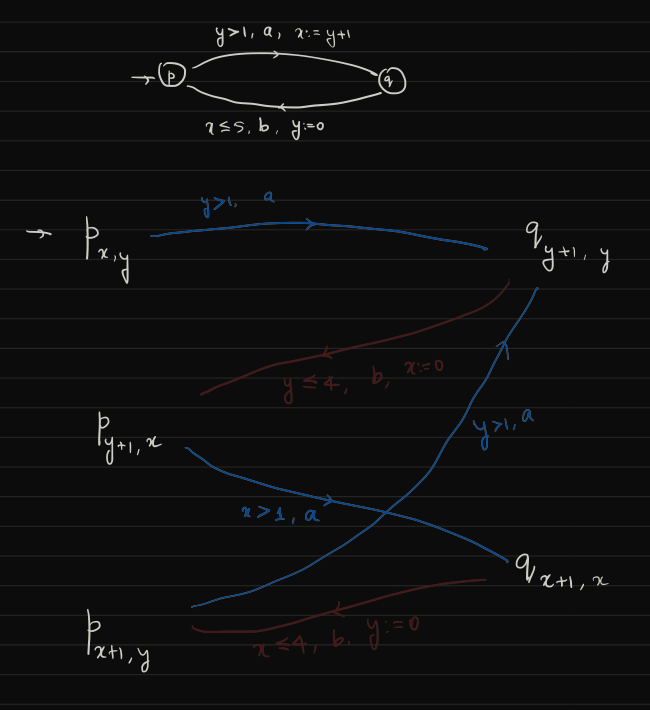 y>1, a, x:=y+1
→ p q
x≤5, b, y:=0
y>1, a
→ p_{x,y} q_{y+1, y}
y≤4, b, x:=0
p_{y+1, x} y>1, a
x>1, a
q_{x+1, x}
p_{x+1, y} x≤4, b. y:=0